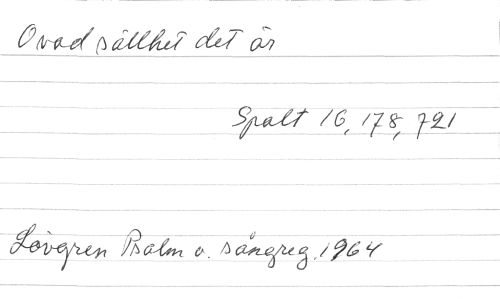 O vad sällhet det är
Spalt 16, 178, 721
Lövgren Psalm o. sångreg. 1964